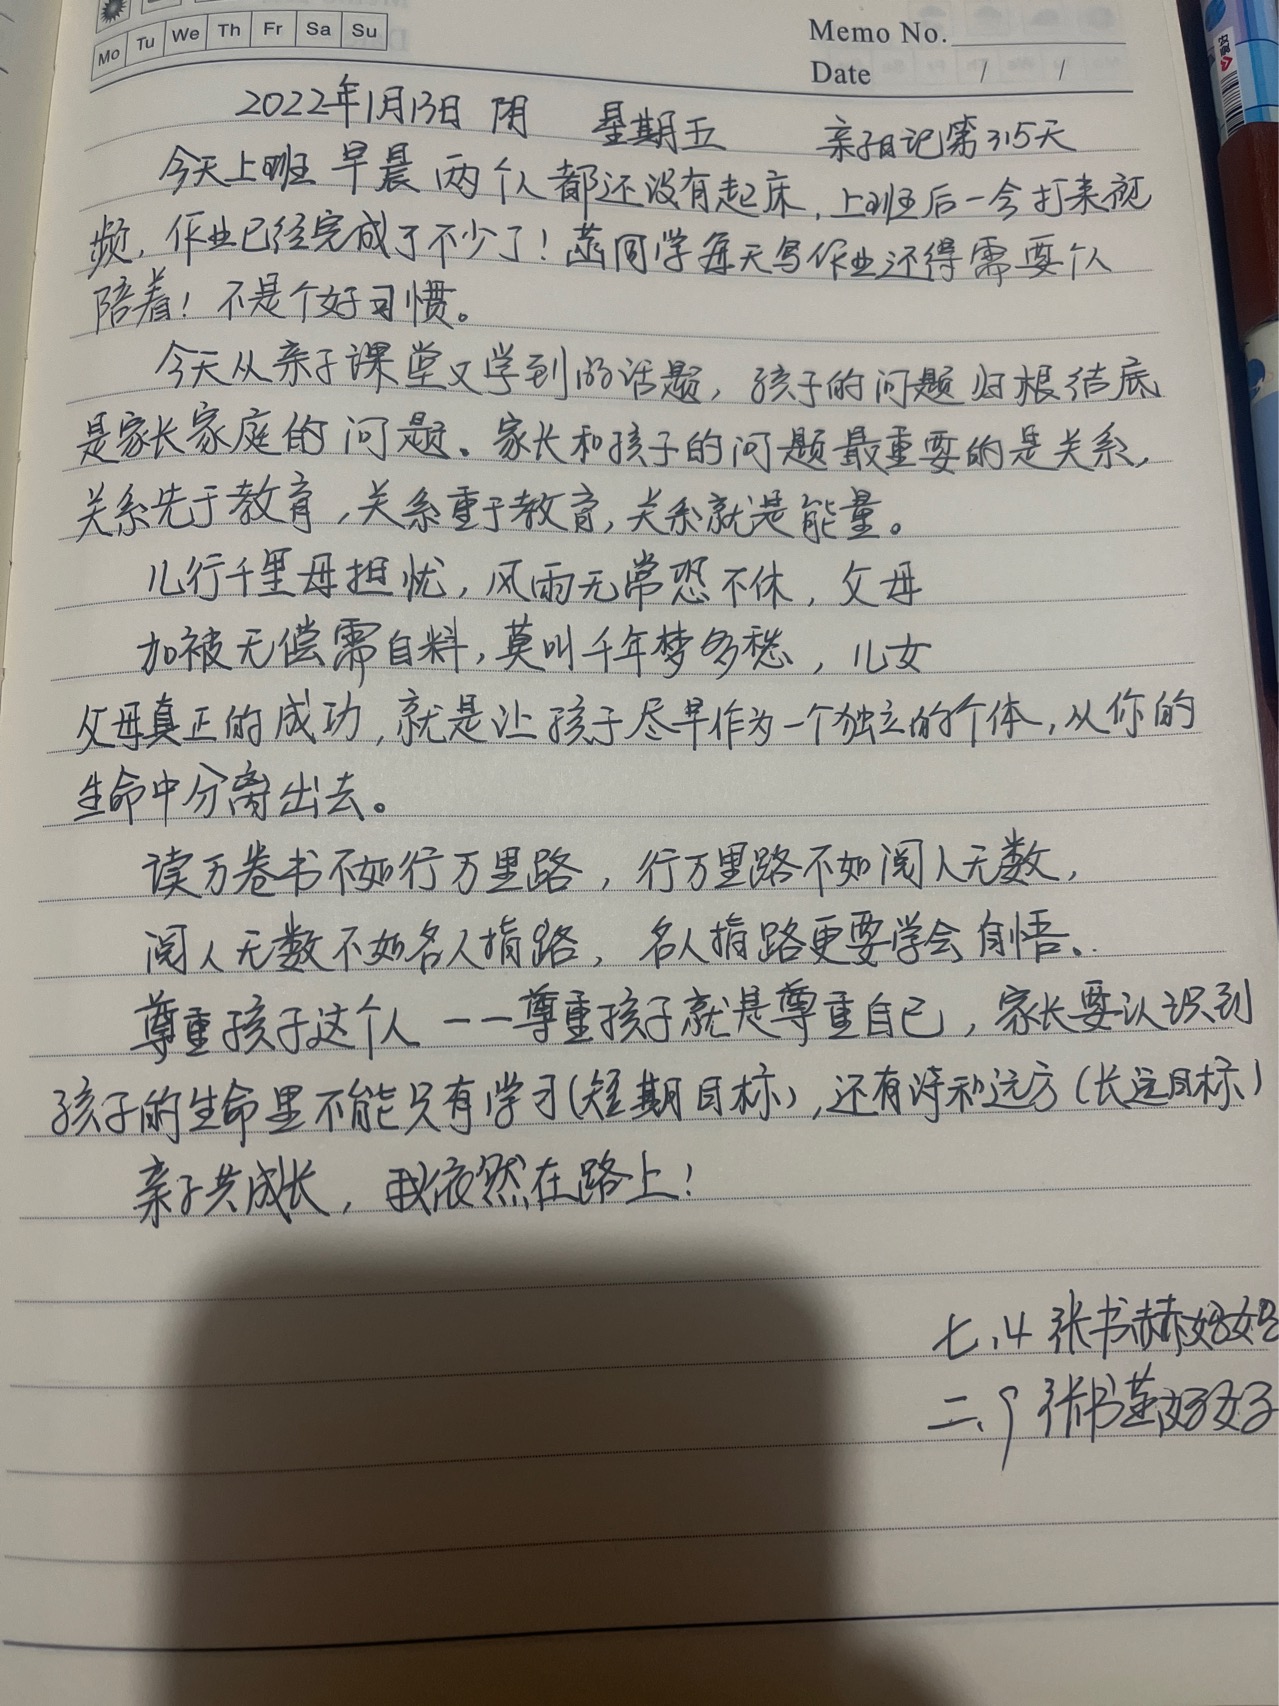 Mo Tu We Th Fr Sa Su
Memo No.
Date / /
2022年1月13日 阴 星期五 亲子日记第315天
今天上班早晨两个人都还没有起床,上班后一会打来视
频,作业已经完成了不少了!菡同学每天写作业还得需要个人
陪着!不是个好习惯。
今天从亲子课堂又学到的话题,孩子的问题归根结底
是家长家庭的问题。家长和孩子的问题最重要的是关系,
关系先于教育,关系重于教育,关系就是能量。
儿行千里母担忧,风雨无常恐不休,父母
加被无偿需自料,莫叫千年梦多愁,儿女
父母真正的成功,就是让孩子尽早作为一个独立的个体,从你的
生命中分离出去。
读万卷书不如行万里路,行万里路不如阅人无数,
阅人无数不如名人指路,名人指路更要学会自悟、..
尊重孩子这个人——尊重孩子就是尊重自己,家长要认识到
孩子的生命里不能只有学习(短期目标),还有诗和远方(长远目标)
亲子共成长,我依然在路上!
七.4 张书赫妈妈
二.9 张书菡妈妈